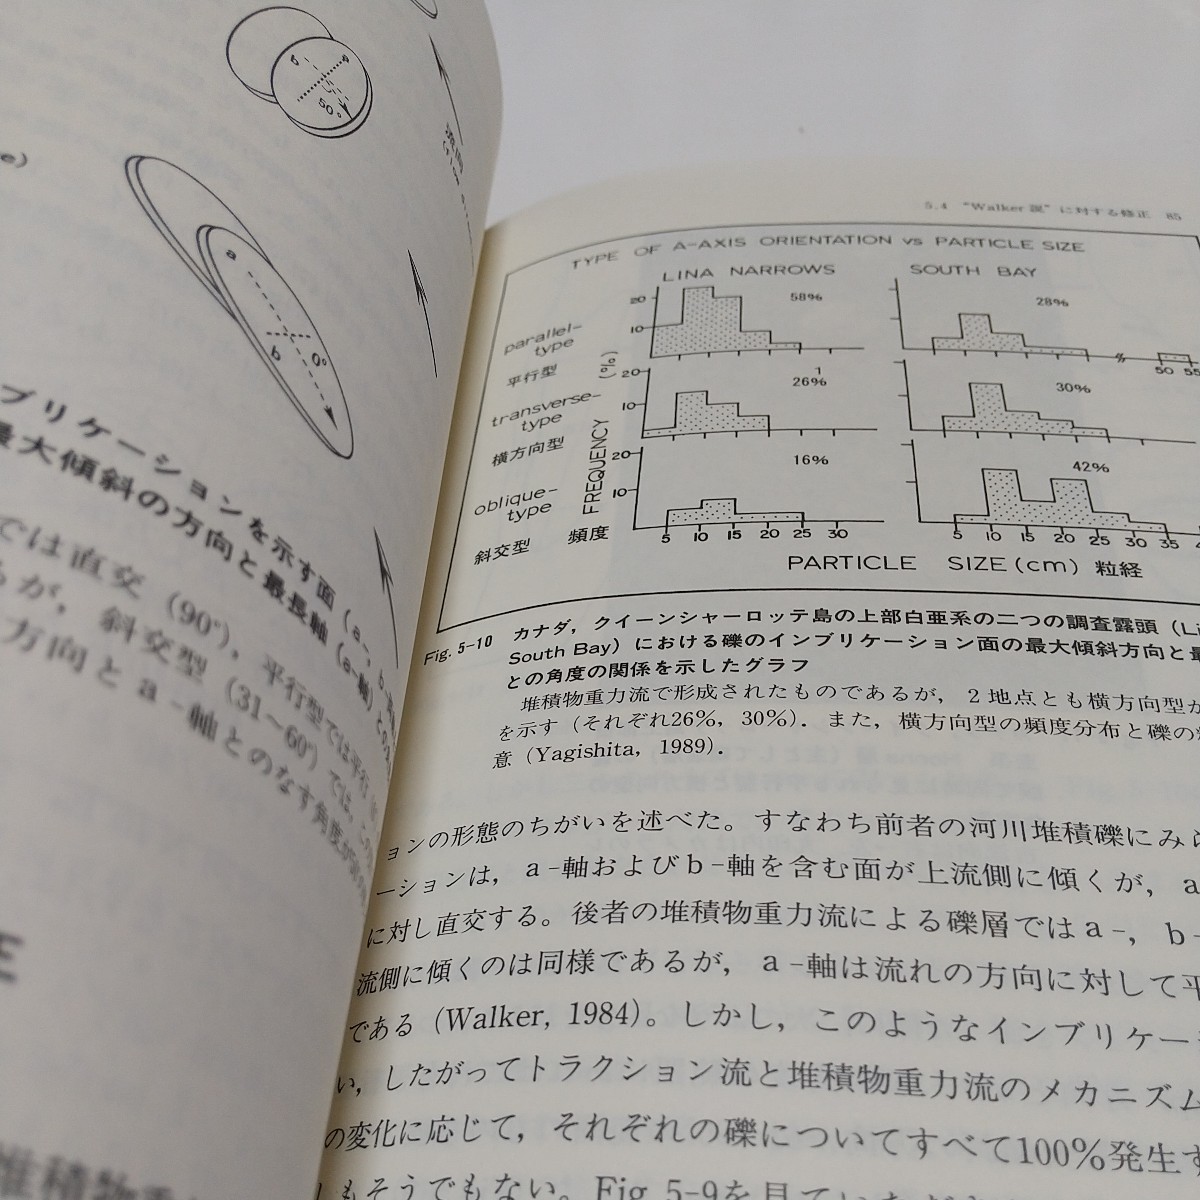 e)
a
b
0°
90°
ブリケーションを示す面 (a-, b-
最大傾斜の方向と最長軸 (a-軸) と
では直交 (90°), 平行型では平行
が, 斜交型 (31~60°) では,
方向とa-軸とのなす角度が
堆積物重
5.4 “Walker 説” に対する修正 85
TYPE OF A-AXIS ORIENTATION vs PARTICLE SIZE
LINA NARROWS
SOUTH BAY
parallel-type
平行型
20
10
58%
28%
50 55
transverse-type
横方向型
20
10
1
26%
30%
oblique-type
斜交型
20
10
16%
42%
FREQUENCY (%)
頻度
5 10 15 20 25 30
5 10 15 20 25 30 35 4
PARTICLE SIZE (cm) 粒経
Fig. 5-10 カナダ, クイーンシャーロッテ島の上部白亜系の二つの調査露頭 (Li
South Bay) における礫のインブリケーション面の最大傾斜方向と最
との角度の関係を示したグラフ
堆積物重力流で形成されたものであるが, 2地点とも横方向型が
を示す (それぞれ26%, 30%). また, 横方向型の頻度分布と礫の粒
意 (Yagishita, 1989).
ョンの形態のちがいを述べた。すなわち前者の河川堆積礫にみら
ーションは, a-軸およびb-軸を含む面が上流側に傾くが, a
に対し直交する。後者の堆積物重力流による礫層ではa-, b-
流側に傾くのは同様であるが, a-軸は流れの方向に対して平
である (Walker, 1984)。しかし, このようなインブリケー
い, したがってトラクション流と堆積物重力流のメカニズム
の変化に応じて, それぞれの礫についてすべて100%発生す
しもそうでもない。Fig. 5-9を見ていただ